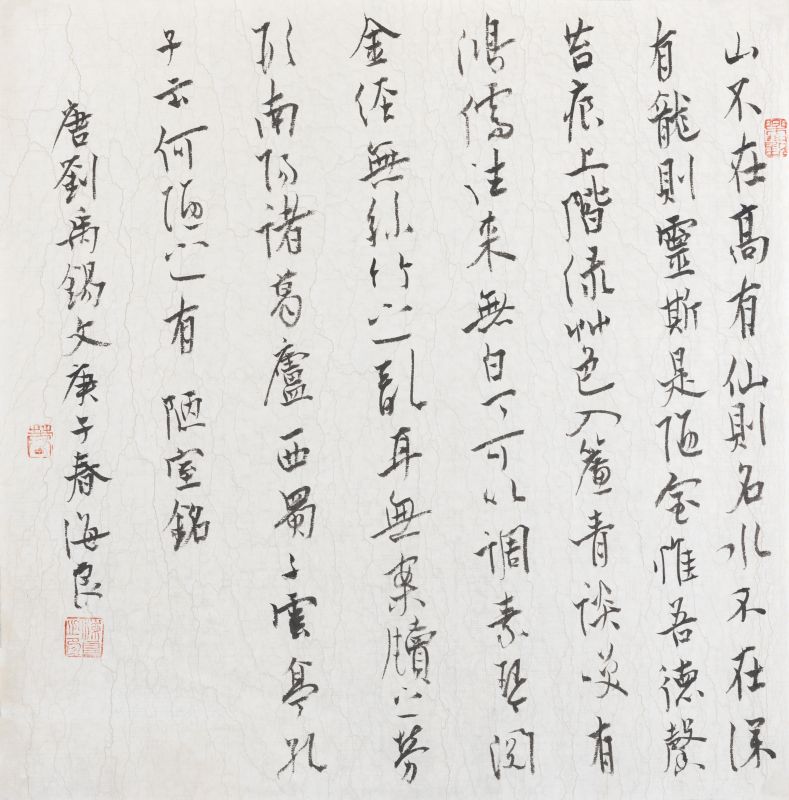 山不在高有仙則名水不在深
有龍則靈斯是陋室惟吾德馨
苔痕上階綠艸色入簾青談笑有
鴻儒往来無白丁可以調素琴閱
金經無絲竹之亂耳無案牘之勞
形南陽諸葛廬西蜀子雲亭孔
子云何陋之有 陋室銘
唐劉禹錫文庚子春海良